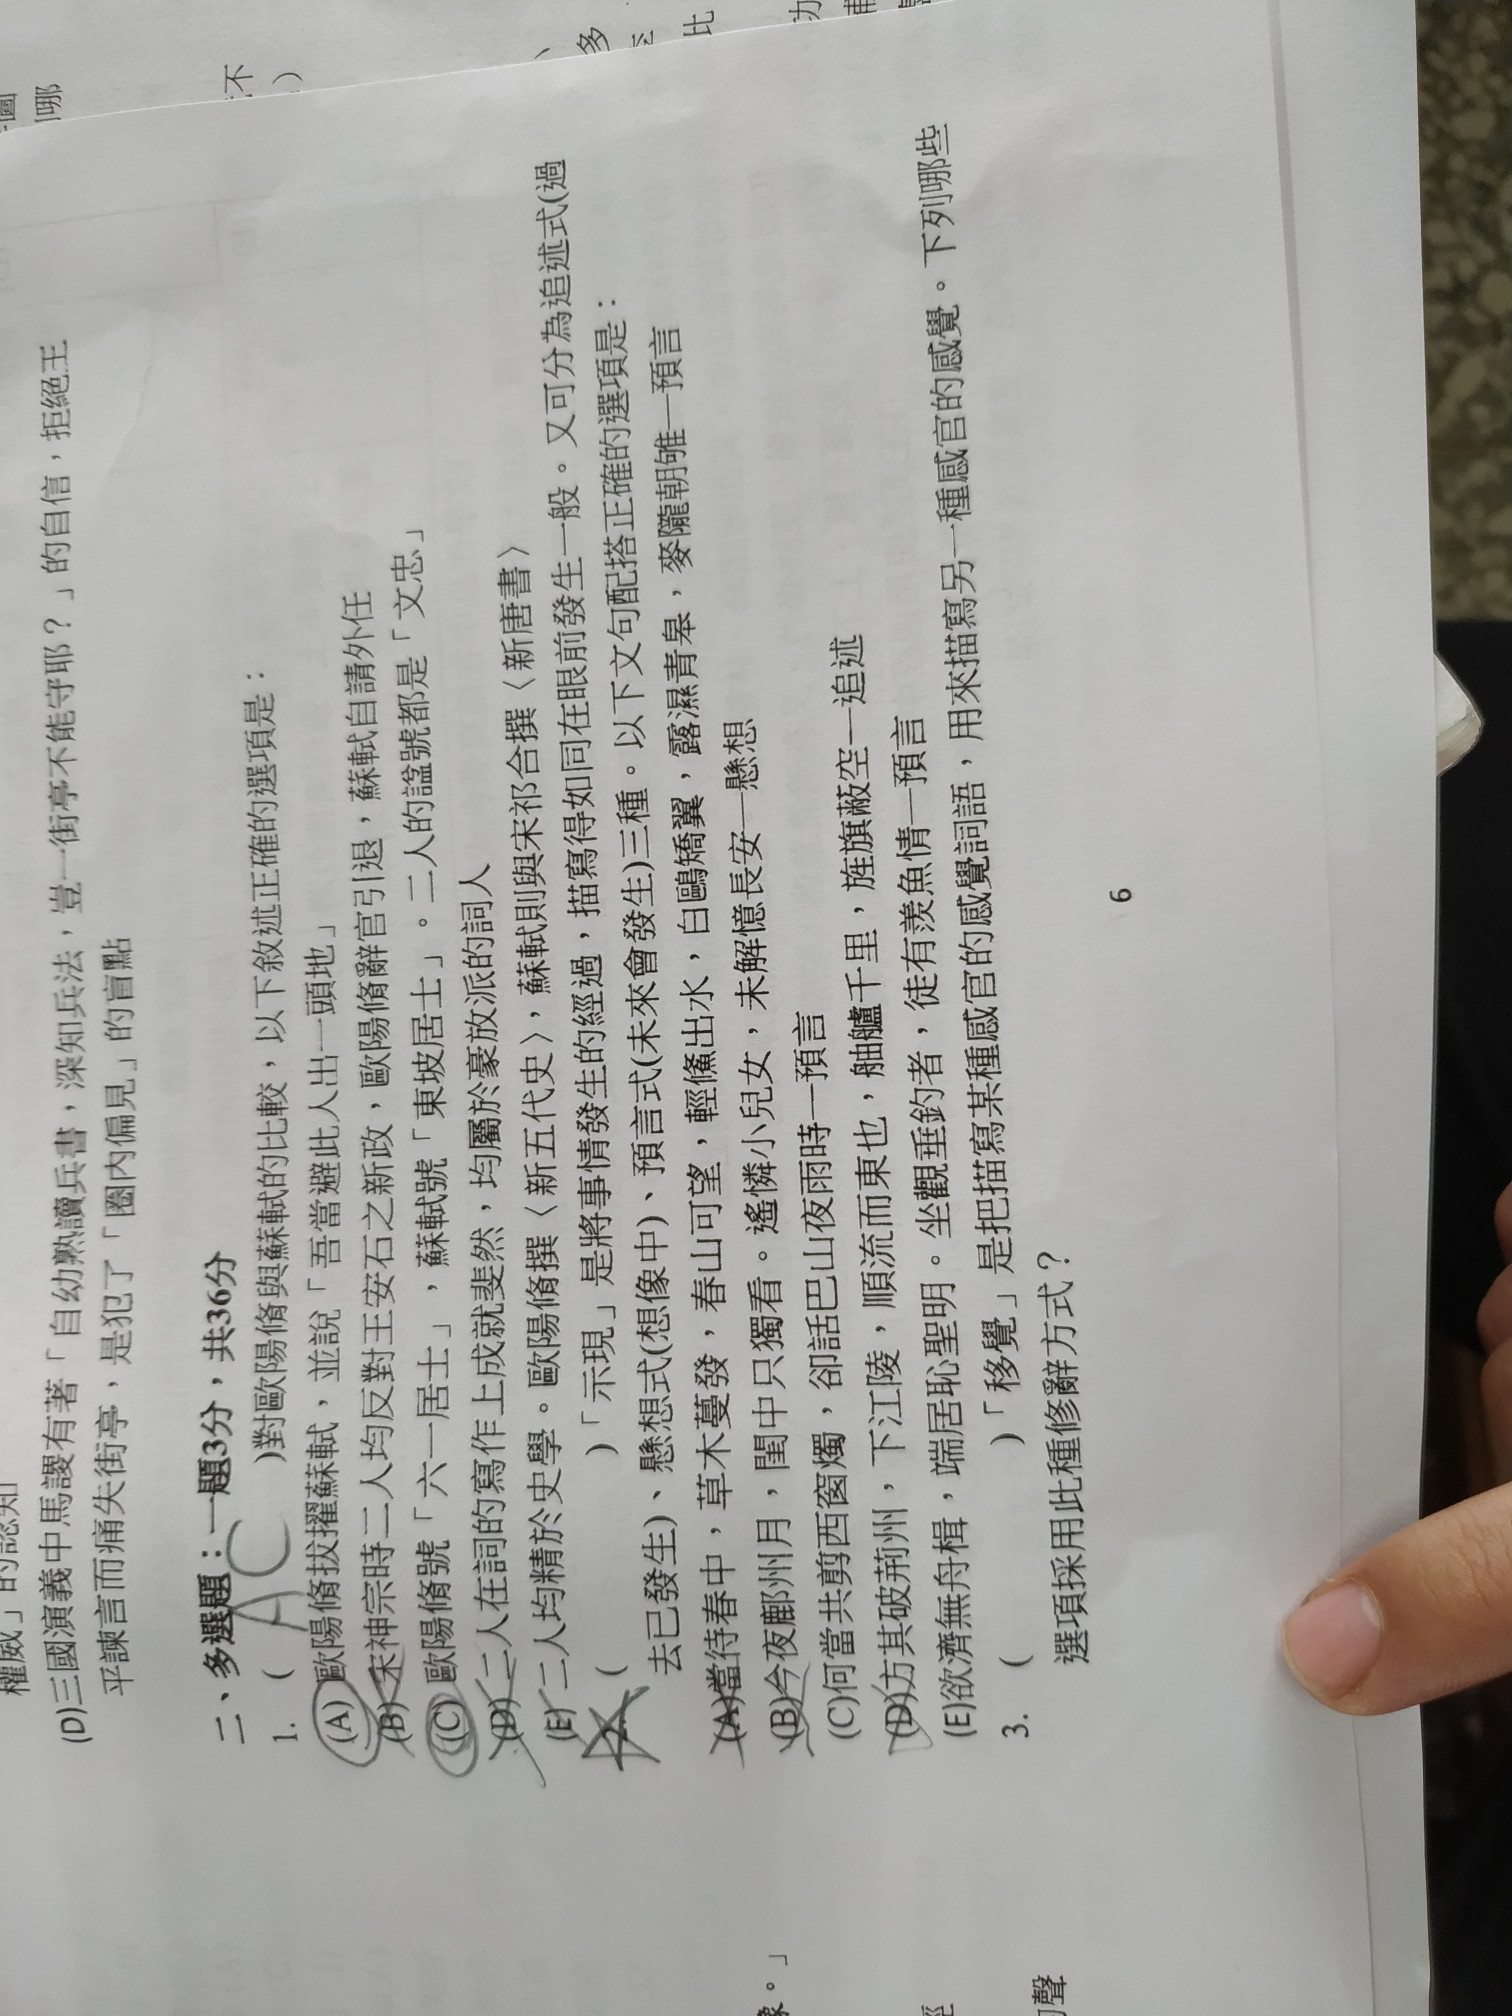 權威」的認知
(D)三國演義中馬謖有著「自幼熟讀兵書，深知兵法，豈一街亭不能守耶？」的自信，拒絕王
平諫言而痛失街亭，是犯了「圈內偏見」的盲點
二、多選題：一題3分，共36分
AC
1. ( )對歐陽脩與蘇軾的比較，以下敘述正確的選項是：
(A) 歐陽脩拔擢蘇軾，並說「吾當避此人出一頭地」
(B) 宋神宗時二人均反對王安石之新政，歐陽脩辭官引退，蘇軾自請外任
(C) 歐陽脩號「六一居士」，蘇軾號「東坡居士」。二人的諡號都是「文忠」
(D) 二人在詞的寫作上成就斐然，均屬於豪放派的詞人
(E) 二人均精於史學。歐陽脩撰〈新五代史〉，蘇軾則與宋祁合撰〈新唐書〉
2. ( )「示現」是將事情發生的經過，描寫得如同在眼前發生一般。又可分為追述式(過
去已發生)、懸想式(想像中)、預言式(未來會發生)三種。以下文句配搭正確的選項是：
(A)當待春中，草木蔓發，春山可望，輕鯈出水，白鷗矯翼，露濕青皋，麥隴朝雊—預言
(B)今夜鄜州月，閨中只獨看。遙憐小兒女，未解憶長安—懸想
(C)何當共剪西窗燭，卻話巴山夜雨時—預言
(D)方其破荊州，下江陵，順流而東也，舳艫千里，旌旗蔽空—追述
(E)欲濟無舟楫，端居恥聖明。坐觀垂釣者，徒有羨魚情—預言
3. ( )「移覺」是把描寫某種感官的感覺詞語，用來描寫另一種感官的感覺。下列哪些
選項採用此種修辭方式？
6